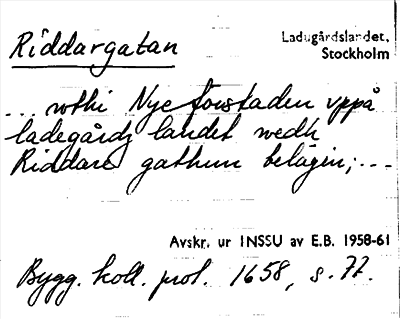 Riddargatan
Ladugårdslandet,
Stockholm
... wthi Nye förstaden vppå
ladegårdz landet wedh
Riddare gathun belägin; ---
Avskr. ur INSSU av E.B. 1958-61
Bygg. koll. prot. 1658, s. 77.